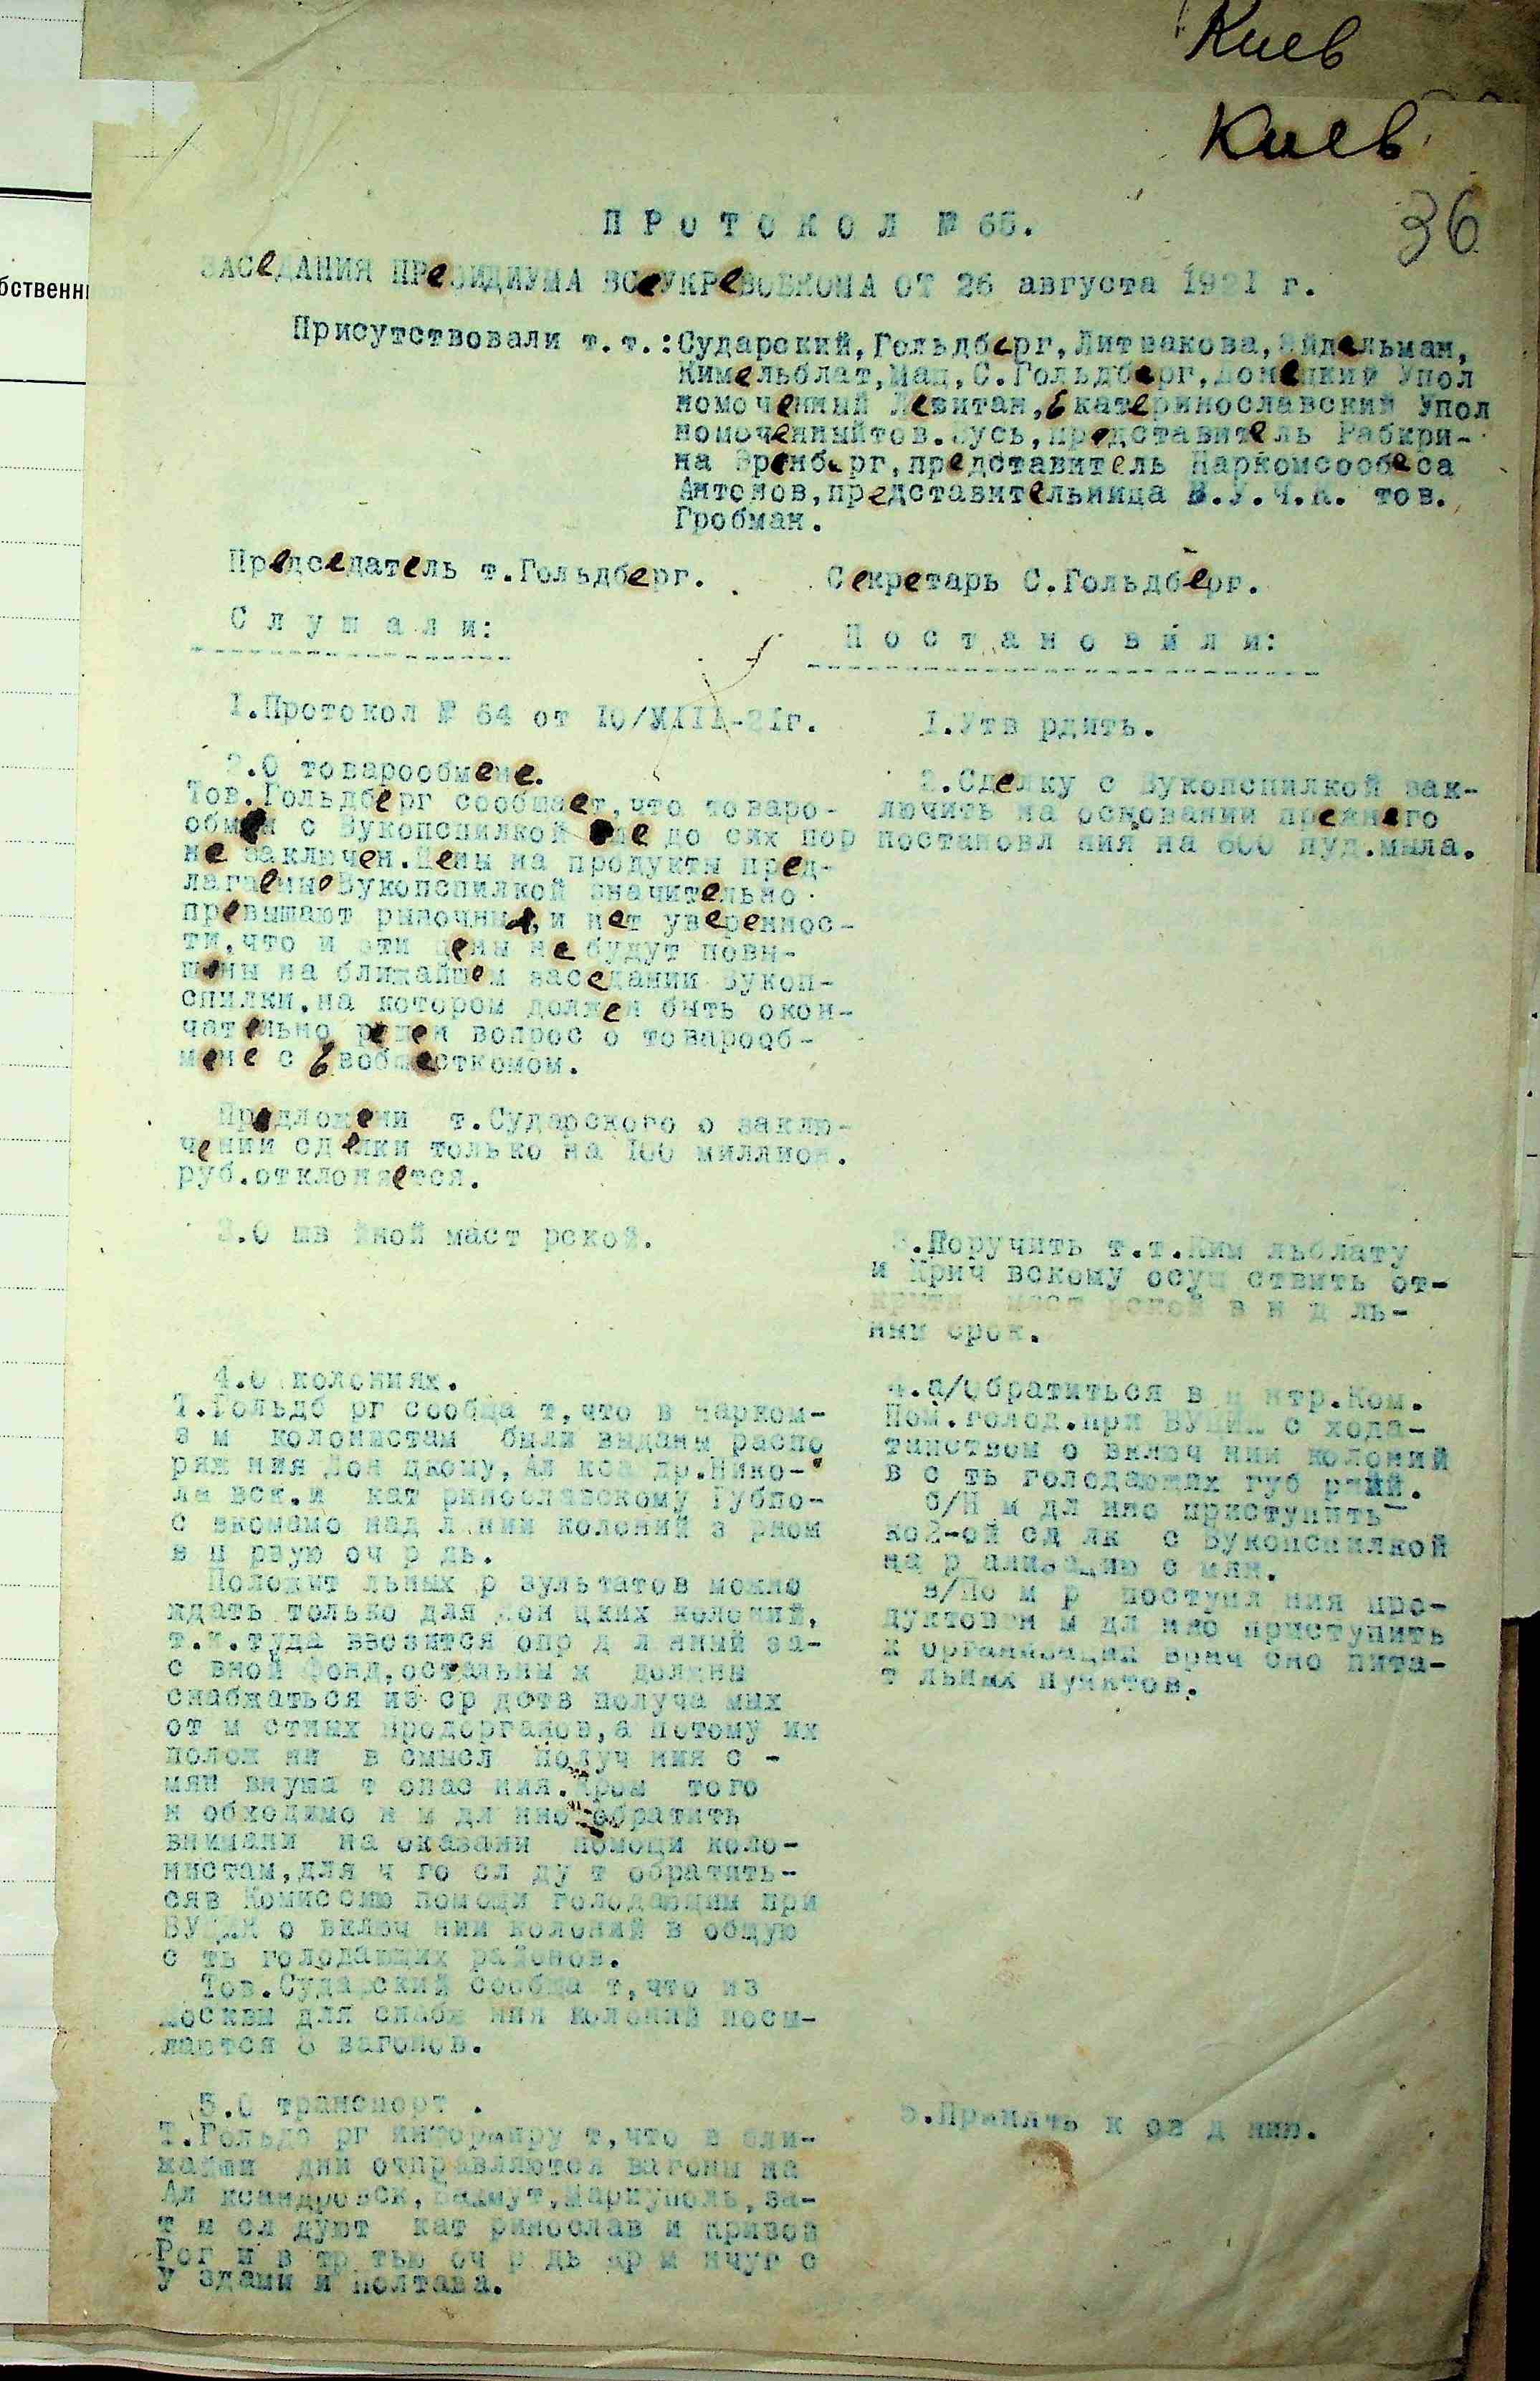 Киев
Киев
36
бственн
П Р О Т О К О Л № 65.
ЗАСЕДАНИЯ ПРЕЗИДИУМА ВСЕУКРЕВОБКОМА ОТ 26 августа 1921 г.
Присутствовали т.т.:Сударский,Гольдберг,Литвакова,Эйдельман,
Кимельблат,Мац,С.Гольдберг,Донецкий Упол
номоченный Левитан,Екатеринославский Упол
номоченныйтов.Зусь,представитель Рабкри-
на Эренберг,представитель Наркомсообеса
Антонов,представительница В.У.Ч.К. тов.
Гробман.
Председатель т.Гольдберг.
Секретарь С.Гольдберг.
С л у ш а л и:
П о с т а н о в и л и:
1.Протокол № 64 от 10/VIII-21г.
1.Утв рдить.
2.О товарообмене.
Тов.Гольдберг сообщает,что товаро-
обмен с Вукопспилкой еще до сих пор
не заключен.Цены на продукты пред-
лагаемыеВукопспилкой значительно
превышают рыночные,и нет увереннос-
ти,что и эти цены не будут повы-
шены на ближайшем заседании Вукоп-
спилки,на котором должен быть окон-
чательно решен вопрос о товарооб-
мене с Евобщесткомом.
Предложени т.Сударского о заклю-
чении сделки только на 100 миллион.
руб.отклоняется.
2.Сделку с Вукопспилкой зак-
лючить на основании прежнего
постановл ния на 600 пуд.мыла.
3.О шв йной маст рской.
3.Поручить т.т.Ким льблату
и Крич вскому осущ ствить от-
крыти маст рской в н д ль-
ный срок.
4.О колониях.
Т.Гольдб рг сообща т,что в Нарком-
з м колонистам были выданы распо
ряж ния Дон цкому, Ал кса др.Нико-
ла вск.и кат ринославскому Губпо-
с вкомамо над л нии колоний з рном
в п рвую оч р дь.
Положит льных р зультатов можно
ждать только для Дон цких колоний,
т.к.туда ввозится опр д л нный за-
с вной фонд,остальны ж должны
снабжаться из ср дств получа мых
от м стных продорганов,а потому их
полож ни в смысл получ ния с -
мян внуша т опас ния.Кром того
н обходимо н м дл нно обратить
внимани на оказани помощи коло-
нистам,для ч го сл ду т обратить-
сяв Комиссию помощи голодающим при
ВУЦИК о включ нии колоний в общую
с ть голодающих районов.
Тов.Сударский сообща т,что из
Москвы для снабж ния колоний посы-
лаются 8 вагонов.
4.а/Обратиться в Ц нтр.Ком.
Пом.голод.при ВУЦИК с хода-
тайством о включ нии колоний
в с ть голодающих губ рний.
б/Н м дл нно приступить
кой-ой сд лк с Вукопспилкой
на р ализацию с мян.
в/По м р поступл ния про-
дуктовн м дл нно приступить
к организации врач бно пита-
т льных пунктов.
5.О транспорт .
Т.Гольдб рг информиру т,что в бли-
жайши дни отправляются вагоны на
Ал ксандровск,Бахмут,Мариуполь,за-
т м сл дуют кат ринослав и Кривой
Рог и в тр тью оч р дь Кр м нчуг с
у здами и Полтава.
5.Принять к св д нию.